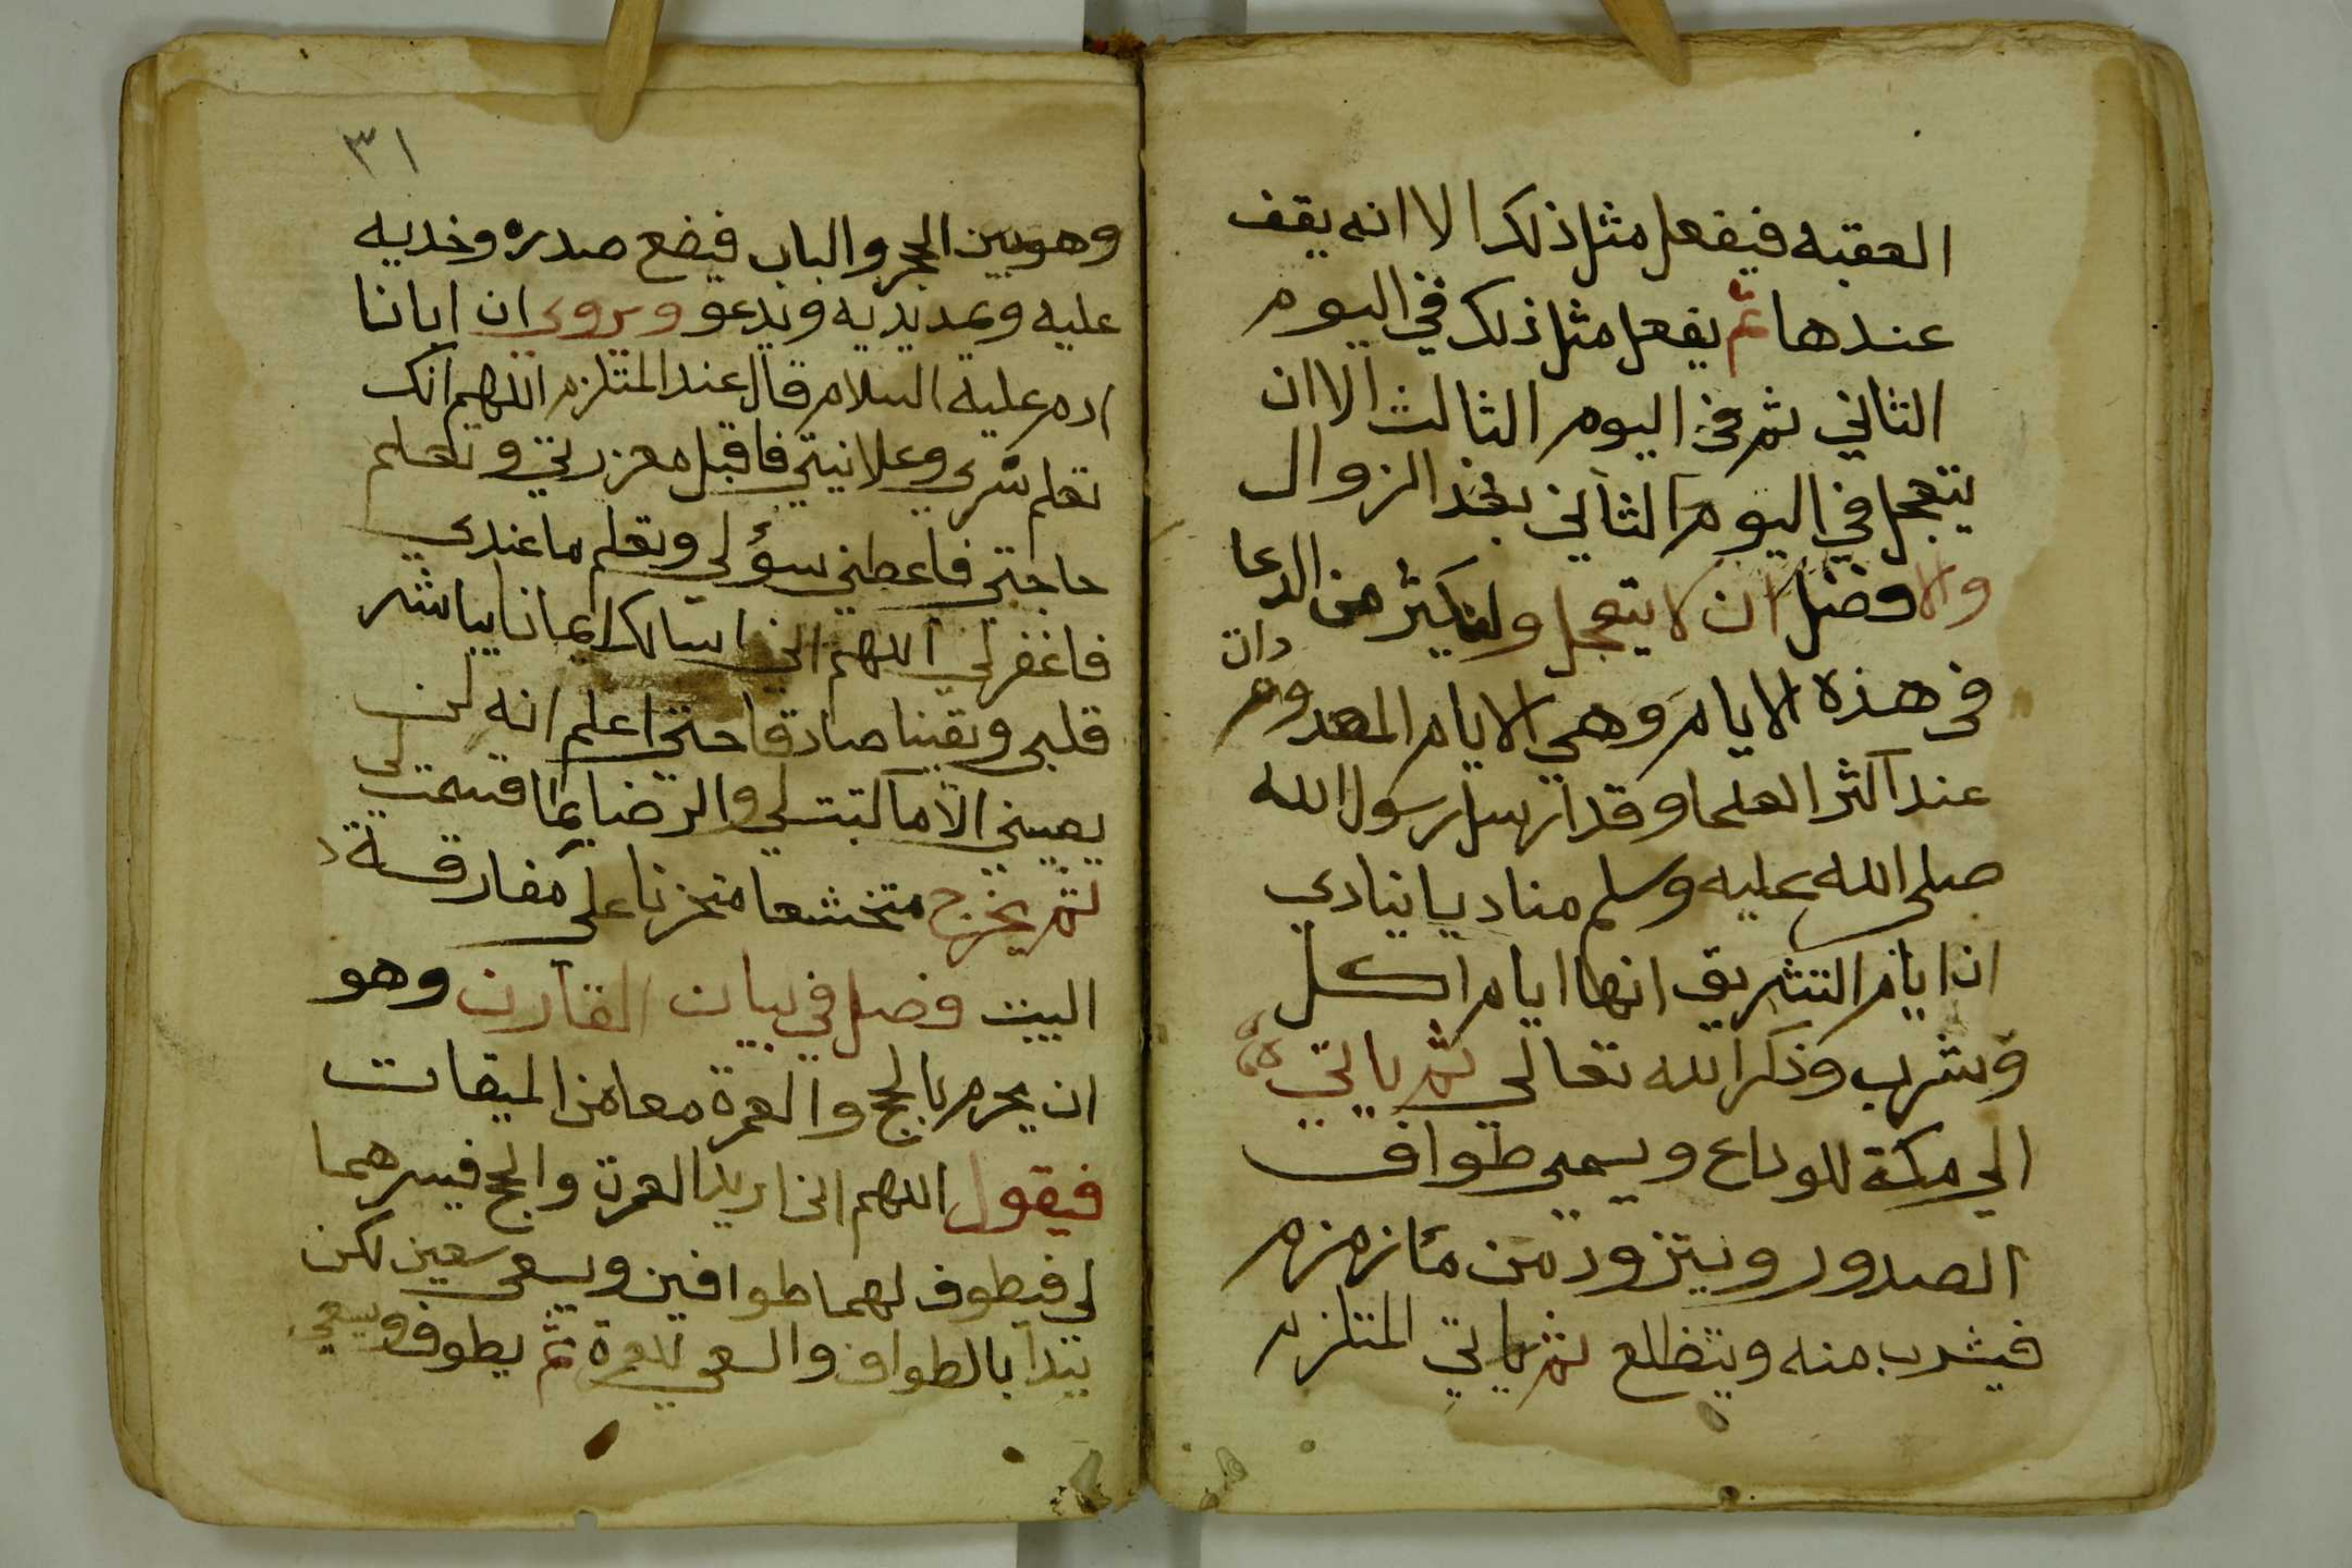 العقبه فيفعل مثل ذلك الا انه يقف
عندها ثم يفعل مثل ذلك في اليوم
الثاني ثم في اليوم الثالث الا ان
يتعجل في اليوم الثاني بعد الزوال
والافضل ان لا يتعجل وليكثر من الدعا
في هذه الايام وهي الايام المعدودات
عند اكثر العلما وقد ارسل رسول الله
صلى الله عليه وسلم مناديا ينادي
ان ايام التشريق انها ايام اكل
وشرب وذكر الله تعالى ثم ياتي
الى مكة للوداع ويسمى طواف
الصدور ويتزود من ماء زمزم
فيشرب منه ويتظلع ثم ياتي الملتزم
٣١
وهو بين الحجر والباب فيضع صدره وخديه
عليه ويمد يديه ويدعو ويروي ان ابانا
ادم عليه السلام قال عند الملتزم اللهم انك
تعلم سري وعلانيتي فاقبل معزرتي وتعلم
حاجتي فاعطني سؤلي وتعلم ما عندي
فاغفر لي اللهم اني اسالك ايمانا يباشر
قلبي ويقينا صادقا حتى اعلم انه لن
يصيبني الا ما كتبت لي والرضا بما قسمت لي
ثم يخرج متخشعا متحزنا على مفارقة
البيت فصل في بيان القارن وهو
ان يحرم بالحج والعمرة معا من الميقات
فيقول اللهم اني اريد العمرة والحج فيسرهما
لي فيطوف لهما طوافين ويسعى سعين لكن
يتدا بالطواف والسعي للعمرة ثم يطوف ويسعي